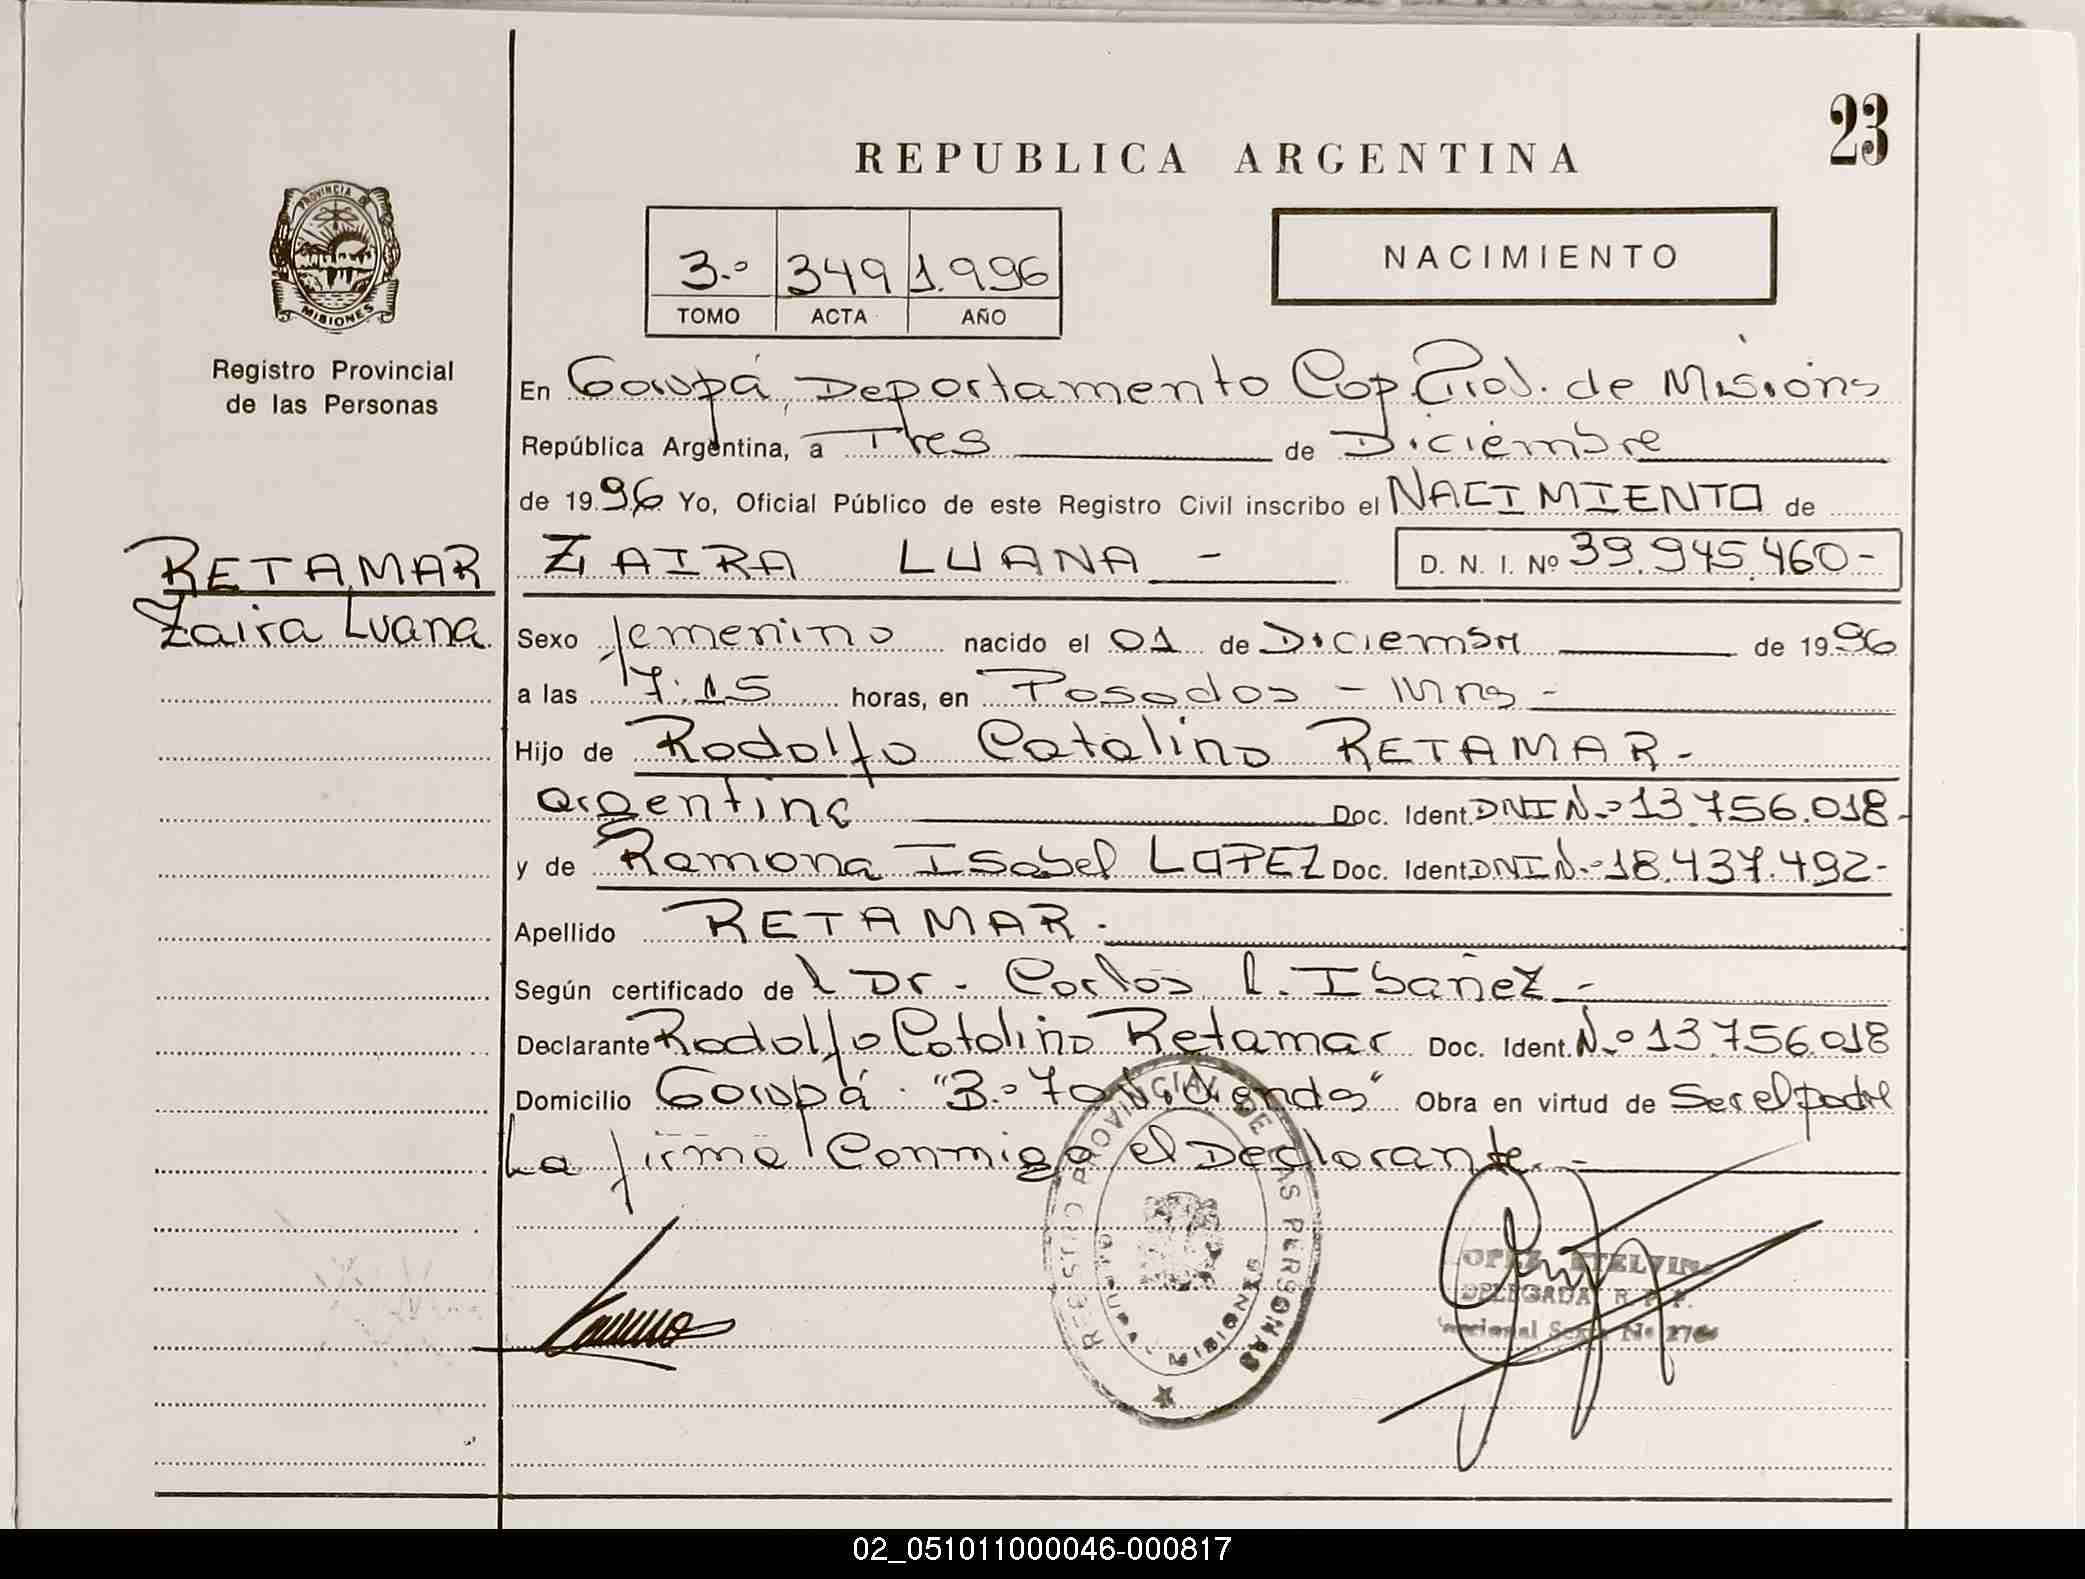 23
REPUBLICA ARGENTINA
PROVINCIA DE
MISIONES
3.º 349 1.996
TOMO ACTA AÑO
NACIMIENTO
Registro Provincial
de las Personas
En Garupá, Departamento Cap. Prov. de Misions
República Argentina, a Tres de Diciembre
de 1996 Yo, Oficial Público de este Registro Civil inscribo el NACIMIENTO de
RETAMAR
Zaira Luana
ZAIRA LUANA - D. N. I. Nº 39.945.460-
Sexo femenino nacido el 01 de Diciembre de 1996
a las 7:15 horas, en Posadas - Mns -
Hijo de Rodolfo Catalino RETAMAR -
argentina Doc. Ident. DNI N.º 13.756.018-
y de Ramona Isabel LOPEZ Doc. Ident DNI N.º 18.437.492-
Apellido RETAMAR.
Según certificado de l Dr. Carlos L. Ibañez -
Declarante Rodolfo Catalino Retamar Doc. Ident. N.º 13.756.018
Domicilio Garupá "B.º 70 Viviendas" Obra en virtud de Ser el padre
La firma Conmigo el Declarante. -
REGISTRO PROVINCIAL DE LAS PERSONAS
GARUPA - MISIONES
OPEZ ETELVINA
DELEGADA R. P. P.
02_051011000046-000817